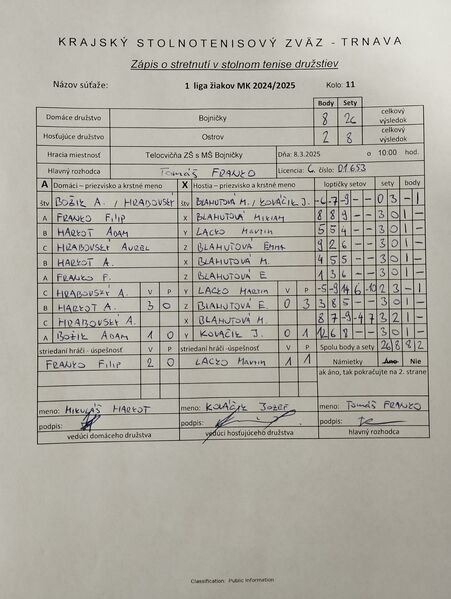 KRAJSKÝ STOLNOTENISOVÝ ZVÄZ - TRNAVA
Zápis o stretnutí v stolnom tenise družstiev
Názov súťaže: 1 liga žiakov MK 2024/2025 Kolo: 11
Body Sety
Domáce družstvo Bojničky 8 26 celkový výsledok
Hosťujúce družstvo Ostrov 2 8 celkový výsledok
Hracia miestnosť Telocvičňa ZŠ s MŠ Bojničky Dňa: 8.3.2025 o 10:00 hod.
Hlavný rozhodca Tomáš FRANKO Licencia: C. číslo: 01653
A Domáci - priezvisko a krstné meno X Hostia - priezvisko a krstné meno loptičky setov sety body
štv BOŽIK A. / HRABOVSKÝ štv BLAHUTOVÁ M. / KOVÁČIK J. -6 -7 -9 - - 0 3 - 1
A FRANKO Filip X BLAHUTOVÁ Miriam 8 8 9 - - 3 0 1 -
B HARKOT ADAM Y LACKO Martin 5 5 4 - - 3 0 1 -
C HRABOVSKÝ AUREL Z BLAHUTOVÁ Emma 9 2 6 - - 3 0 1 -
B HARKOT A. X BLAHUTOVÁ M. 4 5 5 - - 3 0 1 -
A FRANKO F. Z BLAHUTOVÁ E 1 3 6 - - 3 0 1 -
C HRABOVSKÝ A. V P Y LACKO Martin V P -5 -9 14 6 -10 2 3 - 1
B HARKOT A. 3 0 Z BLAHUTOVÁ E. 0 3 3 8 5 - - 3 0 1 -
C HRABOVSKÝ A. X BLAHUTOVÁ M. 8 7 -9 -4 7 3 2 1 -
A BOŽIK ADAM 1 0 Y KOVÁČIK J. 0 1 12 6 8 - - 3 0 1 -
striedaní hráči - úspešnosť V P striedaní hráči - úspešnosť V P Spolu body a sety 26 8 8 2
FRANKO Filip 2 0 LACKO Martin 1 1 Námietky Áno Nie
ak áno, tak pokračujte na 2. strane
meno: MIKULÁŠ HARKOT meno: KOVÁČIK Jozef meno: Tomáš FRANKO
podpis: podpis: podpis:
vedúci domáceho družstva vedúci hosťujúceho družstva hlavný rozhodca
Classification: Public Information